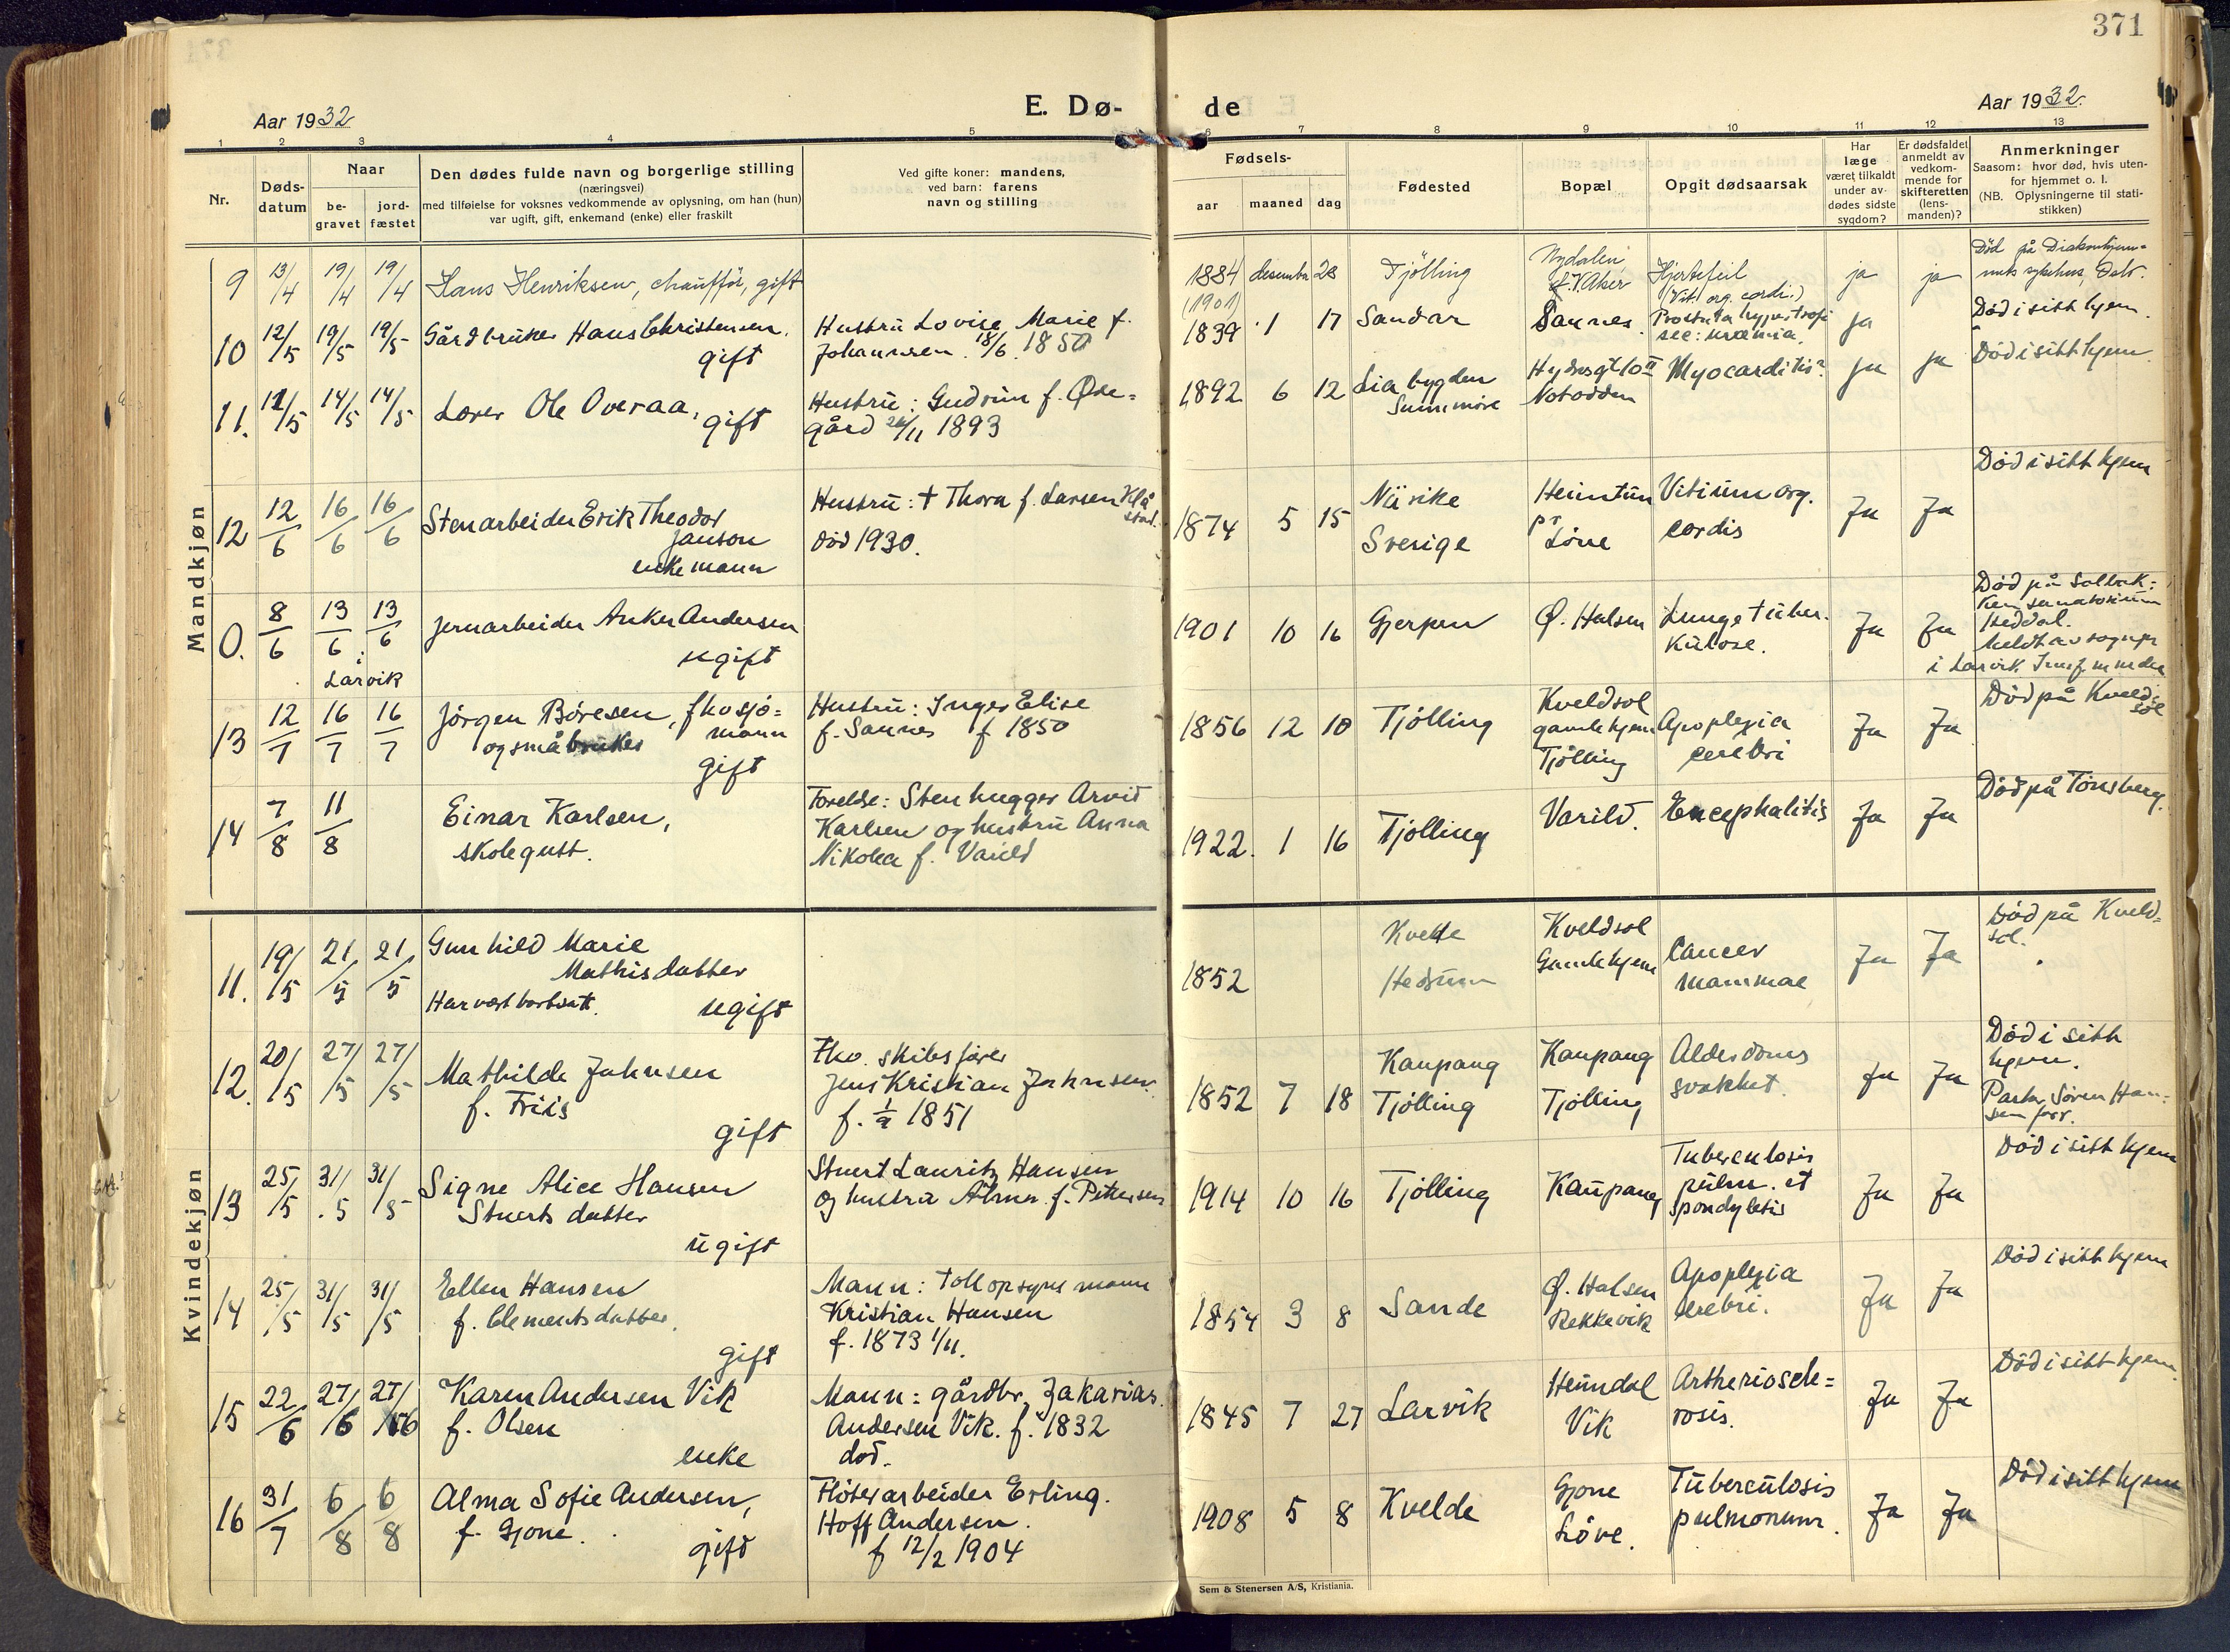 371
Aar 1932
E. Dø-
de
Aar 1932.
1 2 3 4 5 6 7 8 9 10 11 12 13
Nr.
Døds-
datum
Naar
be-
gravet
jord-
fæstet
Den dødes fulde navn og borgerlige stilling
(næringsvei)
med tilføielse for voksnes vedkommende av oplysning, om han (hun)
var ugift, gift, enkemand (enke) eller fraskilt
Ved gifte koner: mandens,
ved barn: farens
navn og stilling
Fødsels-
aar maaned dag
Fødested
Bopæl
Opgit dødsaarsak
Har
læge
været tilkaldt
under av-
dødes sidste
sygdom?
Er dødsfaldet
anmeldt av
vedkom-
mende for
skifteretten
(lens-
manden)?
Anmerkninger
Saasom: hvor død, hvis uten-
for hjemmet o. l.
(NB. Oplysningerne til stati-
stikken)
Mandkjøn
9 13/4 19/4 19/4 Hans Henriksen, chauffør, gift
1884 desember 28 Tjölling
(1901)
Nydalen
V. Aker
Hjertefeil
(Vit. org. cordis.)
ja ja
Död på Diakonhjem-
mets sykehus, Oslo.
10 12/5 19/5 19/5 Gårdbruker Hans Christensen.
gift
Hustru Lovise Marie f.
Johannesen. 18/6. 1850
1839 1 17 Sandar
Sannes.
Prostata hypertrofi
see: uræmia.
ja
Död i sitt hjem.
11. 11/5 14/5 14/5 Lærer Ole Overaa,
gift
Hustru: Gudrun f. Øde-
gård 26/11 1893
1892 6 12 Liabygden
Sunnmöre
Notodden
Myocarditis?
ja ja
Död i sitt hjem.
12 12/6 16/6 16/6 Stenarbeider Erik Theodor
Janson
enkemann
Hustru: † Thora f. Larsen Klå
stad.
död 1930.
1874 5 15
Sverige
Heimtun
pr
Löve
Vitium org.
cordis
Ja Ja
Död i sitt hjem
0. 8/6 13/6 13/6 Jernarbeider Anker Andersen
ugift
i
Larvik
1901 10 16 Gjerpen
Ø. Halsen
Lungetuber-
kulose.
Ja Ja
Död på Solbak-
ken sanatorium
Heddal.
i Larvik
13 12/7 16/7 16/7 Jörgen Böresen, fhv sjö-
mann
og småbruker
gift
Hustru: Inger Elise
f. Sannes f 1850
1856 12 10 Tjölling
Kveldsol
gamlehjem
Tjölling
Apoplexia
cerebri
Ja Ja
Död på Kveld-
sol
14 7/8 11/8 Einar Karlsen,
skolegutt.
Forelde: Stenhugger Arvid
Karlsen og hustru Anna
Nikolea f. Varild
1922. 1 16 Tjölling
Varild.
Encephalitis
Ja Ja
Död på Tönsberg.
Kvindekjøn
11. 19/5 21/5 21/5 Gunhild Marie
Mathisdatter
Har vært bortsatt.
ugift
1852
Kvelle
Hedrum
Kveldsol
Gamlehjem
Cancer
mammae
Ja Ja
Död på Kveld-
sol.
12. 20/5 27/5 27/5 Mathilde Jahnsen
f. Friis
gift
Fhv. skibsförer
Jens Kristian Jahnsen
f. 1/9 1851
1852 7 18
Kaupang
Tjölling
Kaupang
Tjölling
Alderdoms
svakhet.
Ja Ja
Död i sitt
hjem.
Pastor Sören Han-
sen forr.
13 25/5 31/5 31/5 Signe Alice Hansen
Stuerts datter
ugift
Stuert Lauritz Hansen
og hustru Alma f. Pettersen
1914 10 16 Tjölling
Kaupang
Tuberculosis
pulm. et
Spondylitis
Ja Ja
Död i sitt hjem
14 25/5 31/5 31/5 Ellen Hansen
f. Clementsdatter.
gift
Mann: tollopsynsmann
Kristian Hansen
f. 1873 1/11.
1854 3 8 Sande
Ø. Halsen
Rekkevik
Apoplexia
cerebri.
Ja Ja
Död i sitt hjem
15 22/6 27/6 27/6 Karen Andersen Vik
f. Olsen
enke
Mann: gårdbr. Zakarias
Andersen Vik. f. 1832
död.
1845 7 27 Larvik
Heimdal
Vik
Artherioscle-
rosis.
Ja Ja
Död i sitt hjem.
16 31/7 6/8 6/8 Alma Sofie Andersen,
f. Gjone.
gift
Flöterarbeider Erling.
Hoff Andersen.
f 12/2 1904
1908 5 8 Kvelde
Gjone
Löve.
Tuberculosis
pulmonum.
Ja Ja
Död i sitt hjem
Sem & Stenersen A/S, Kristiania.